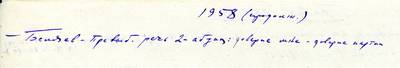 1958 (продолж.)
— Беляев - Превыб. речь 2 абзац: доверие мне - доверие партии